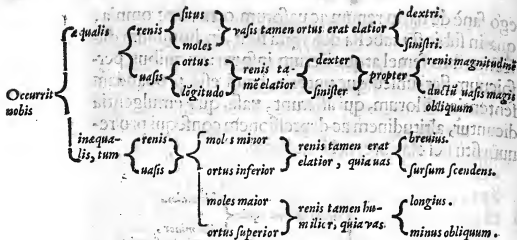 Occurrit nobis
æqualis
renis
situs
moles
vasis tamen ortus erat elatior
dextri.
sinistri.
uasis
ortus
lõgitudo
renis ta-
mẽ elatior
dexter
sinister
propter
renis magnitudinẽ
ductũ uasis magis
obliquum
inæqua-
lis, tum
renis
uasis
moles minor
ortus inferior
renis tamen erat
elatior, quia uas
breuius.
sursum scendens.
moles maior
ortus superior
renis tamen hu-
milior, quia vas.
longius.
minus obliquum.